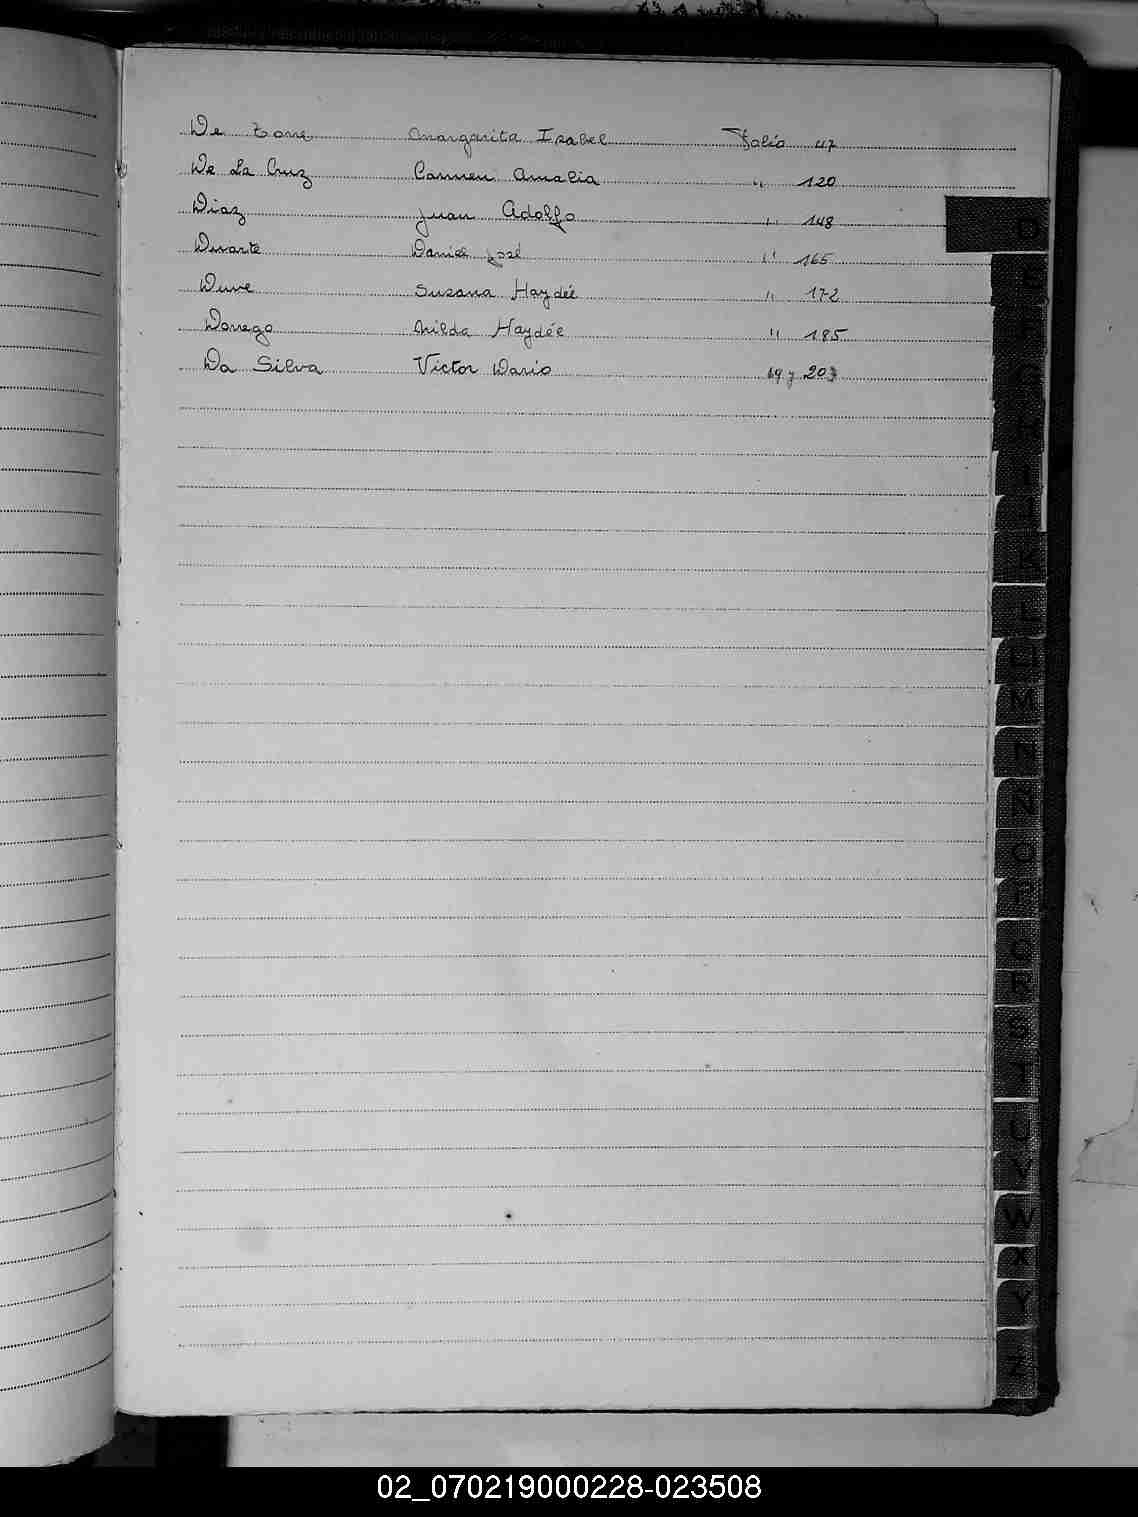 De Margarita Isabel Folio 47
De La Cruz Carmen Amalia " 120
Diaz Juan Adolfo " 148
Duarte Daniel José " 165
Duve Susana Haydée " 172
Donego Nilda Haydée " 185
Da Silva Victor Dario 69 y 203
D
E
F
G
H
I
J
K
L
M
N
Ñ
O
P
Q
R
S
T
U
V
W
X
Y
Z
02_070219000228-023508